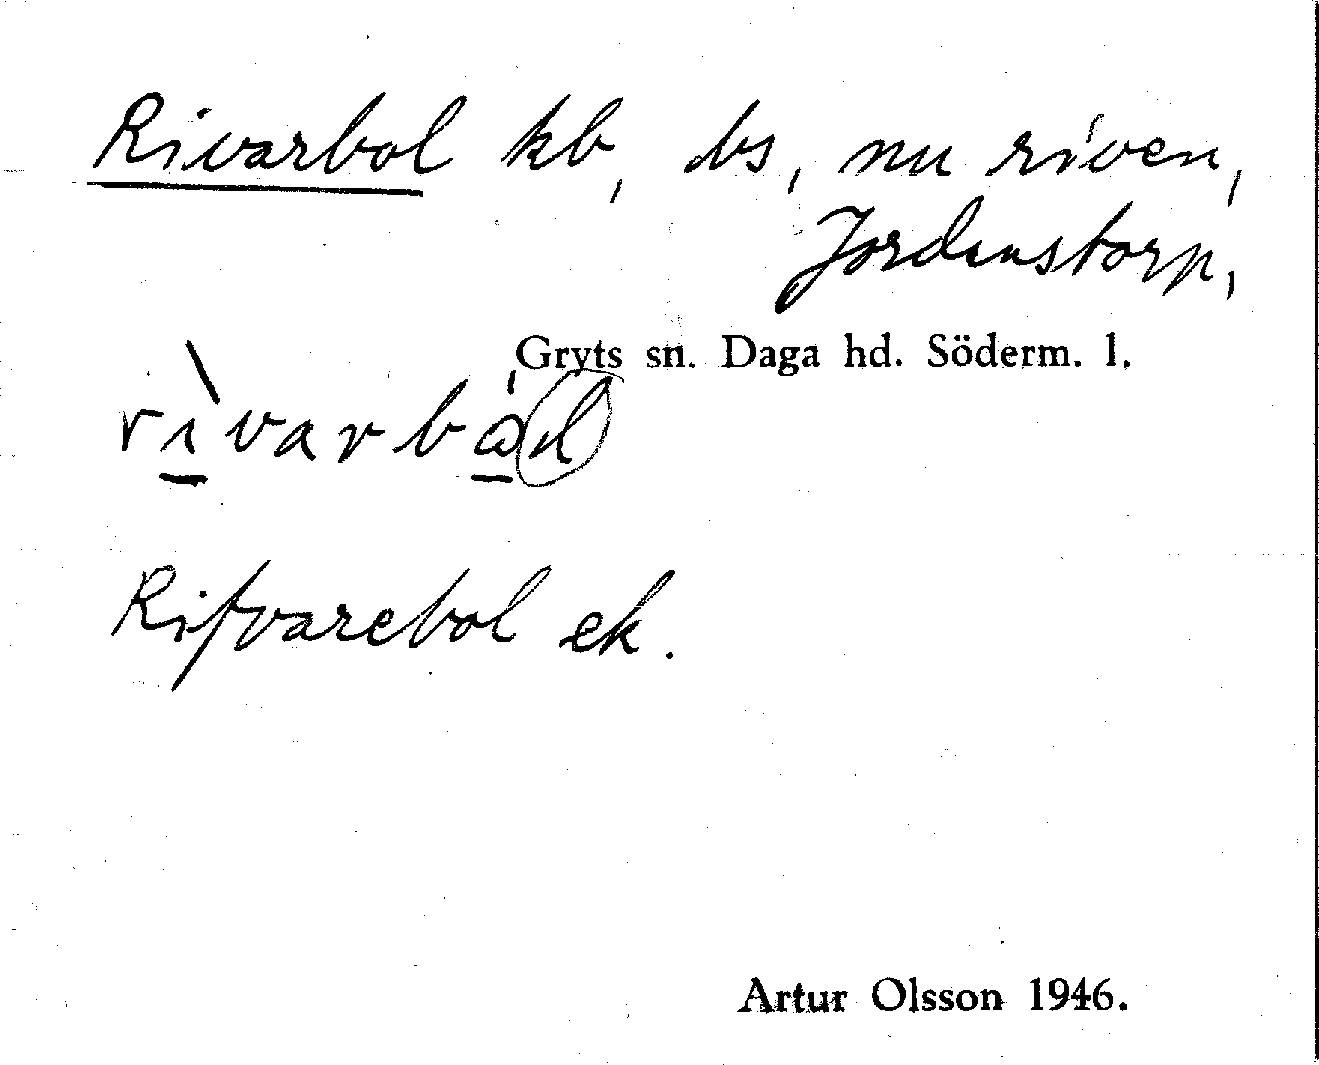 Rivarbol kb, bs, nu riven,
Jordenstorp,
Gryts sn. Daga hd. Söderm. l.
rìvarbǻl
Rifvarebol ek.
Artur Olsson 1946.